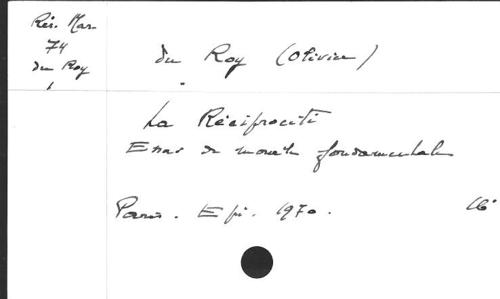 Rés. Mar.
74
du Roy
1
du Roy (Olivier)
La Réciprocité
Essai de morale fondamentale
Paris. Epi. 1970.
16°